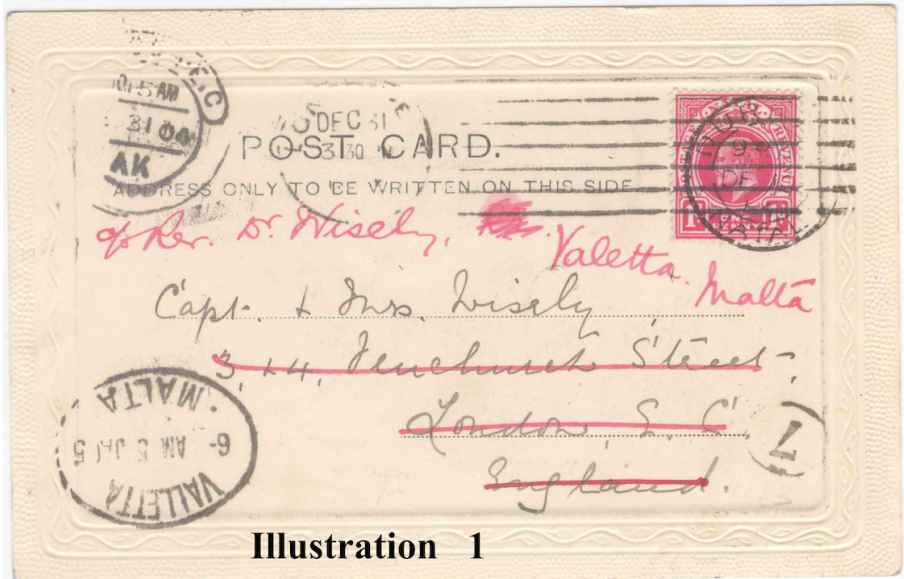 E.C
10 15 AM
31 04
AK
DEC 31
3 30
POST CARD.
ADDRESS ONLY TO BE WRITTEN ON THIS SIDE
POSTAGE REVENUE
ONE PENNY
DE
c/o Rev. Dr. Wisely, Valetta. Malta
Capt. & Mrs. Wisely
3, & 4, Fenchurch Street,
London, E. C.
England.
VALLETTA
6- AM 5 JA 5
MALTA
7
Illustration 1